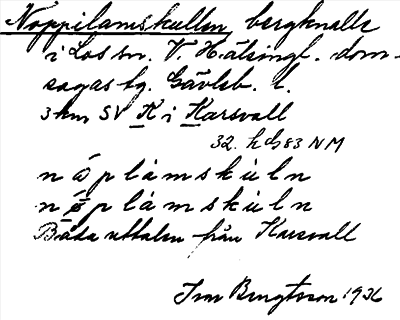 Noppilamskullen bergknalle
i Los sn. V. Hälsingl. dom-
sagas tg. Gävleb. l.
3 km SV K i Karsvall
32. hd 83 NM
n å p l à m s k ù l n
n ø p l à m s k ù l n
Båda uttalen från Karsvall
Ivar Bengtsson 1936